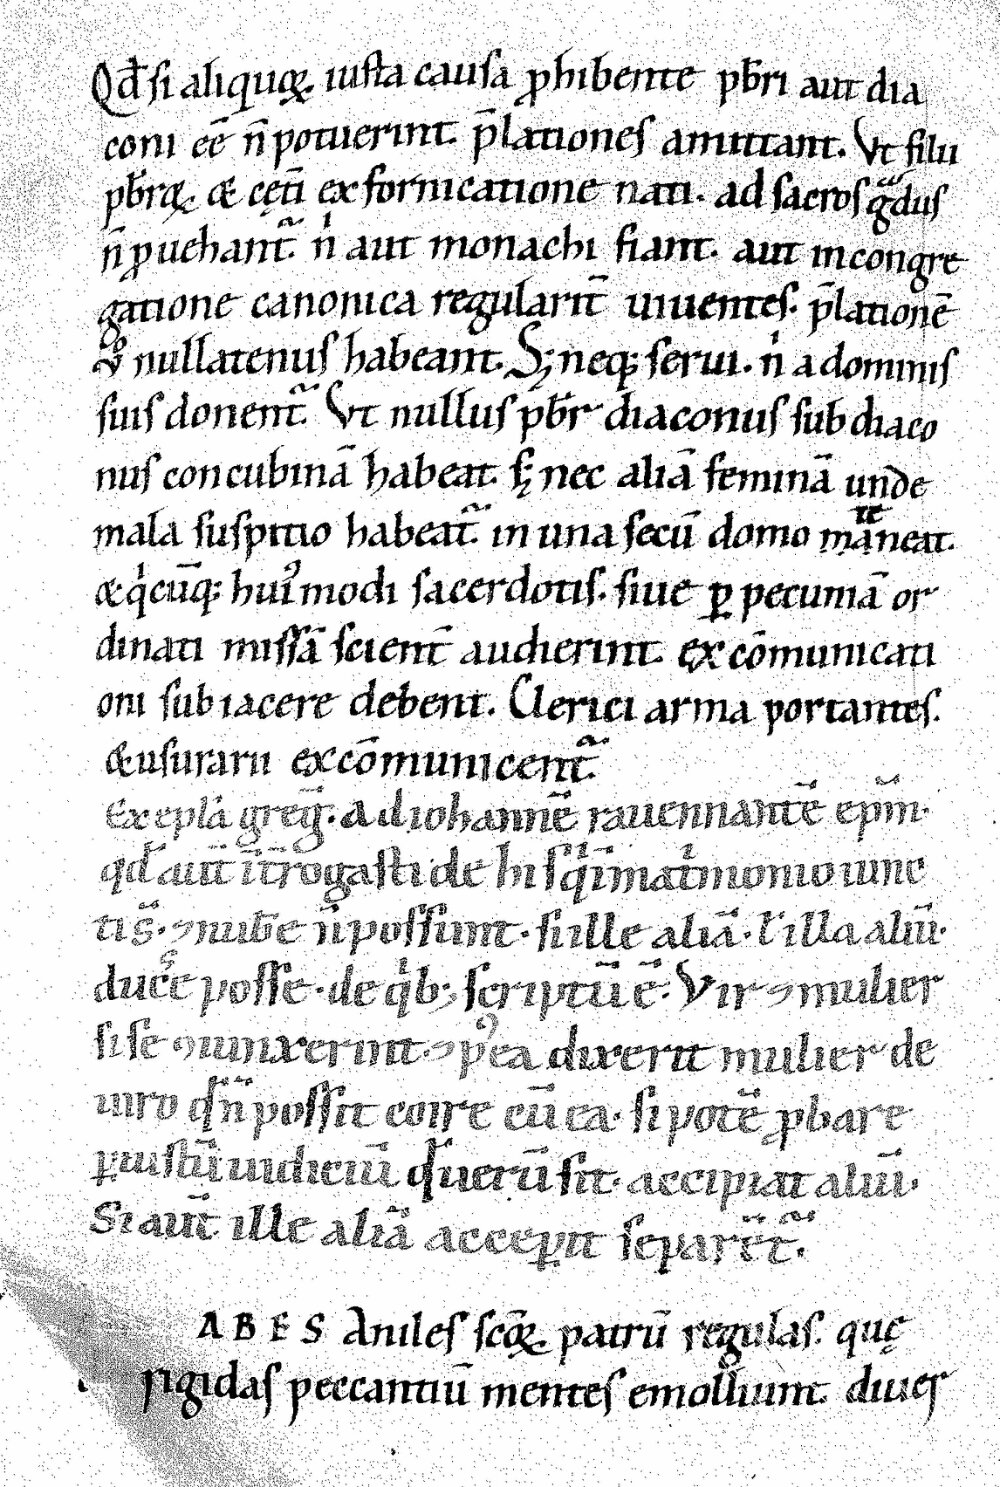 Qđ si aliquoꝝ iusta causa ꝓhibente pƀri aut dia
coni eē n̄ potuerint. p̄lationes amittant. Vt filii
pƀroꝝ & cęti ex fornicatione nati. ad sacros gͣdus
n̄ ꝓuehant᷑. nͥ aut monachi fiant. aut in congre
gatione canonica regularit̄ uiuentes. p̄lationē
ů nullatenus habeant. Sꝫ neq; serui. nͥ a dominis
suis donent᷑. Vt nullus pƀr diaconus subdiaco
nus concubinā habeat. sꝫ nec aliā feminā unde
mala suspitio habeat᷑. in una secū domo maneat.
& qͥcūq; huiꝰmodi sacerdotis. siue ꝑ pecuniā or
dinati missā scient̄ audierint. excōmunicati
oni subiacere debent. Clerici arma portantes.
& usurarii excōmunicent᷑.
Ex epla greḡ. ad iohannē rauennantē epm̄.
qđ aut̄ int̄rogasti de his qͥ matͥmonio iunc
ti s̄. ꝯnuƀe n̄ possunt. si ille aliā. ł illa aliū.
duc̉e posse. de qͥb; scriptū ē. Vir ꝯ mulier
si se ꝯiunxerint. ꝯ pꝰea dixerit mulier de
uiro qđ n̄ possit coire cū ea. si potē ꝓbare
ꝑ iustū iudiciū qđ uerū sit. accipiat aliū.
Si aut̄ ille aliā acceꝑit separēt᷑.
ABES Aniles scōꝝ patrū regulas. quę
rigidas peccantiū mentes emolliunt. diuer